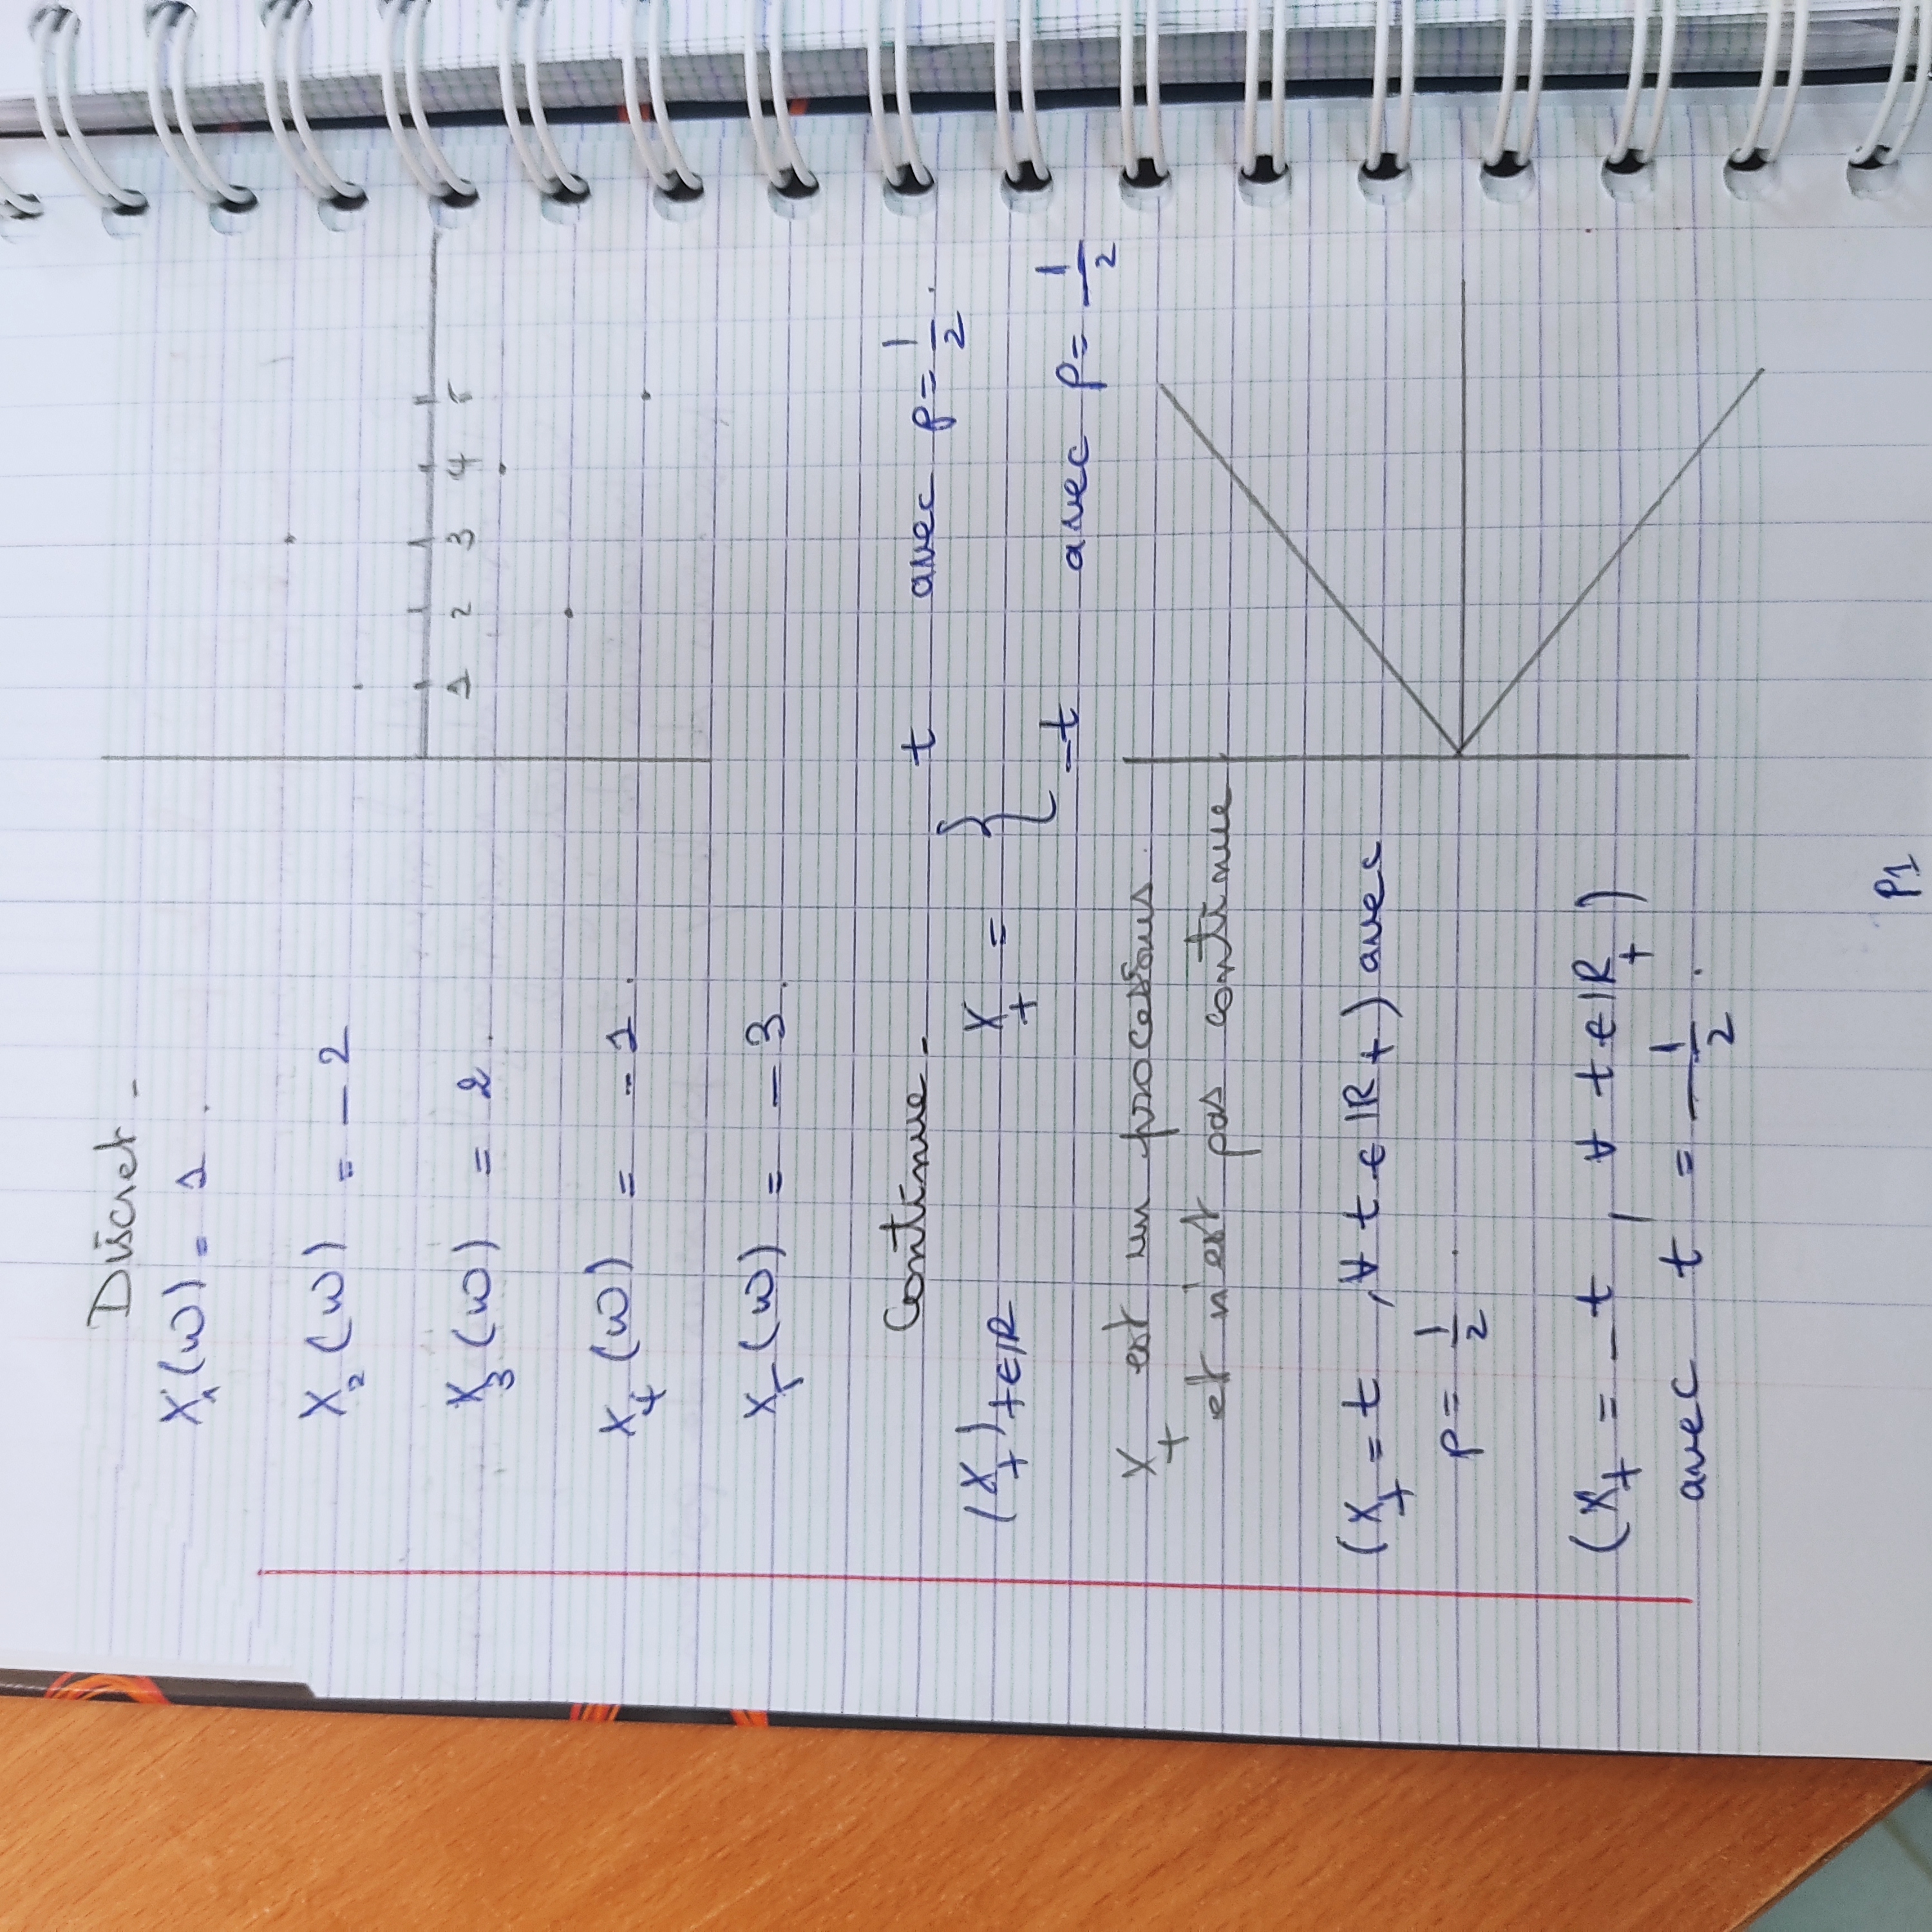 Discret -
X₁(ω) = 1 .
X₂(ω) = - 2
X₃(ω) = 2 .
X₄(ω) = - 1 .
X₅(ω) = - 3 .
1 2 3 4 5
Continue -
t avec p = 1/2 .
(Xₜ)ₜ∈ℝ Xₜ = {
-t avec p = 1/2
Xₜ est un processus .
et n'est pas continue
(Xₜ = t , ∀ t ∈ ℝ₊) avec
p = 1/2 .
(Xₜ = - t , ∀ t ∈ ℝ₊)
avec t = - 1/2 .
P1